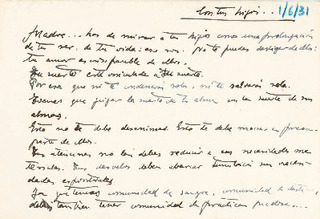 Con tus hijos... 1/6/31
Madre... has de mirar a tus hijos como una prolongación
de tu ser. de tu vida: eso son. No te puedes desligar de ellos:
tu amor es inseparable de ellos.
Su suerte está vinculada a tu suerte.
Por eso que no te condenarás sola, ni te salvarás sola.
Tienes que jugar la suerte de tu alma en la suerte de sus
almas.
Esto no te debe desanimar. Esto te debe
parte de ellos.
Tus atenciones no las debes reducir a sus necesidades ma-
teriales. Tus desvelos deben abarcar también sus necesi-
dades espirituales.
Ya que tenéis comunidad de sangre, comunidad de
debéis también tener comunidad de prácticas piadosas...